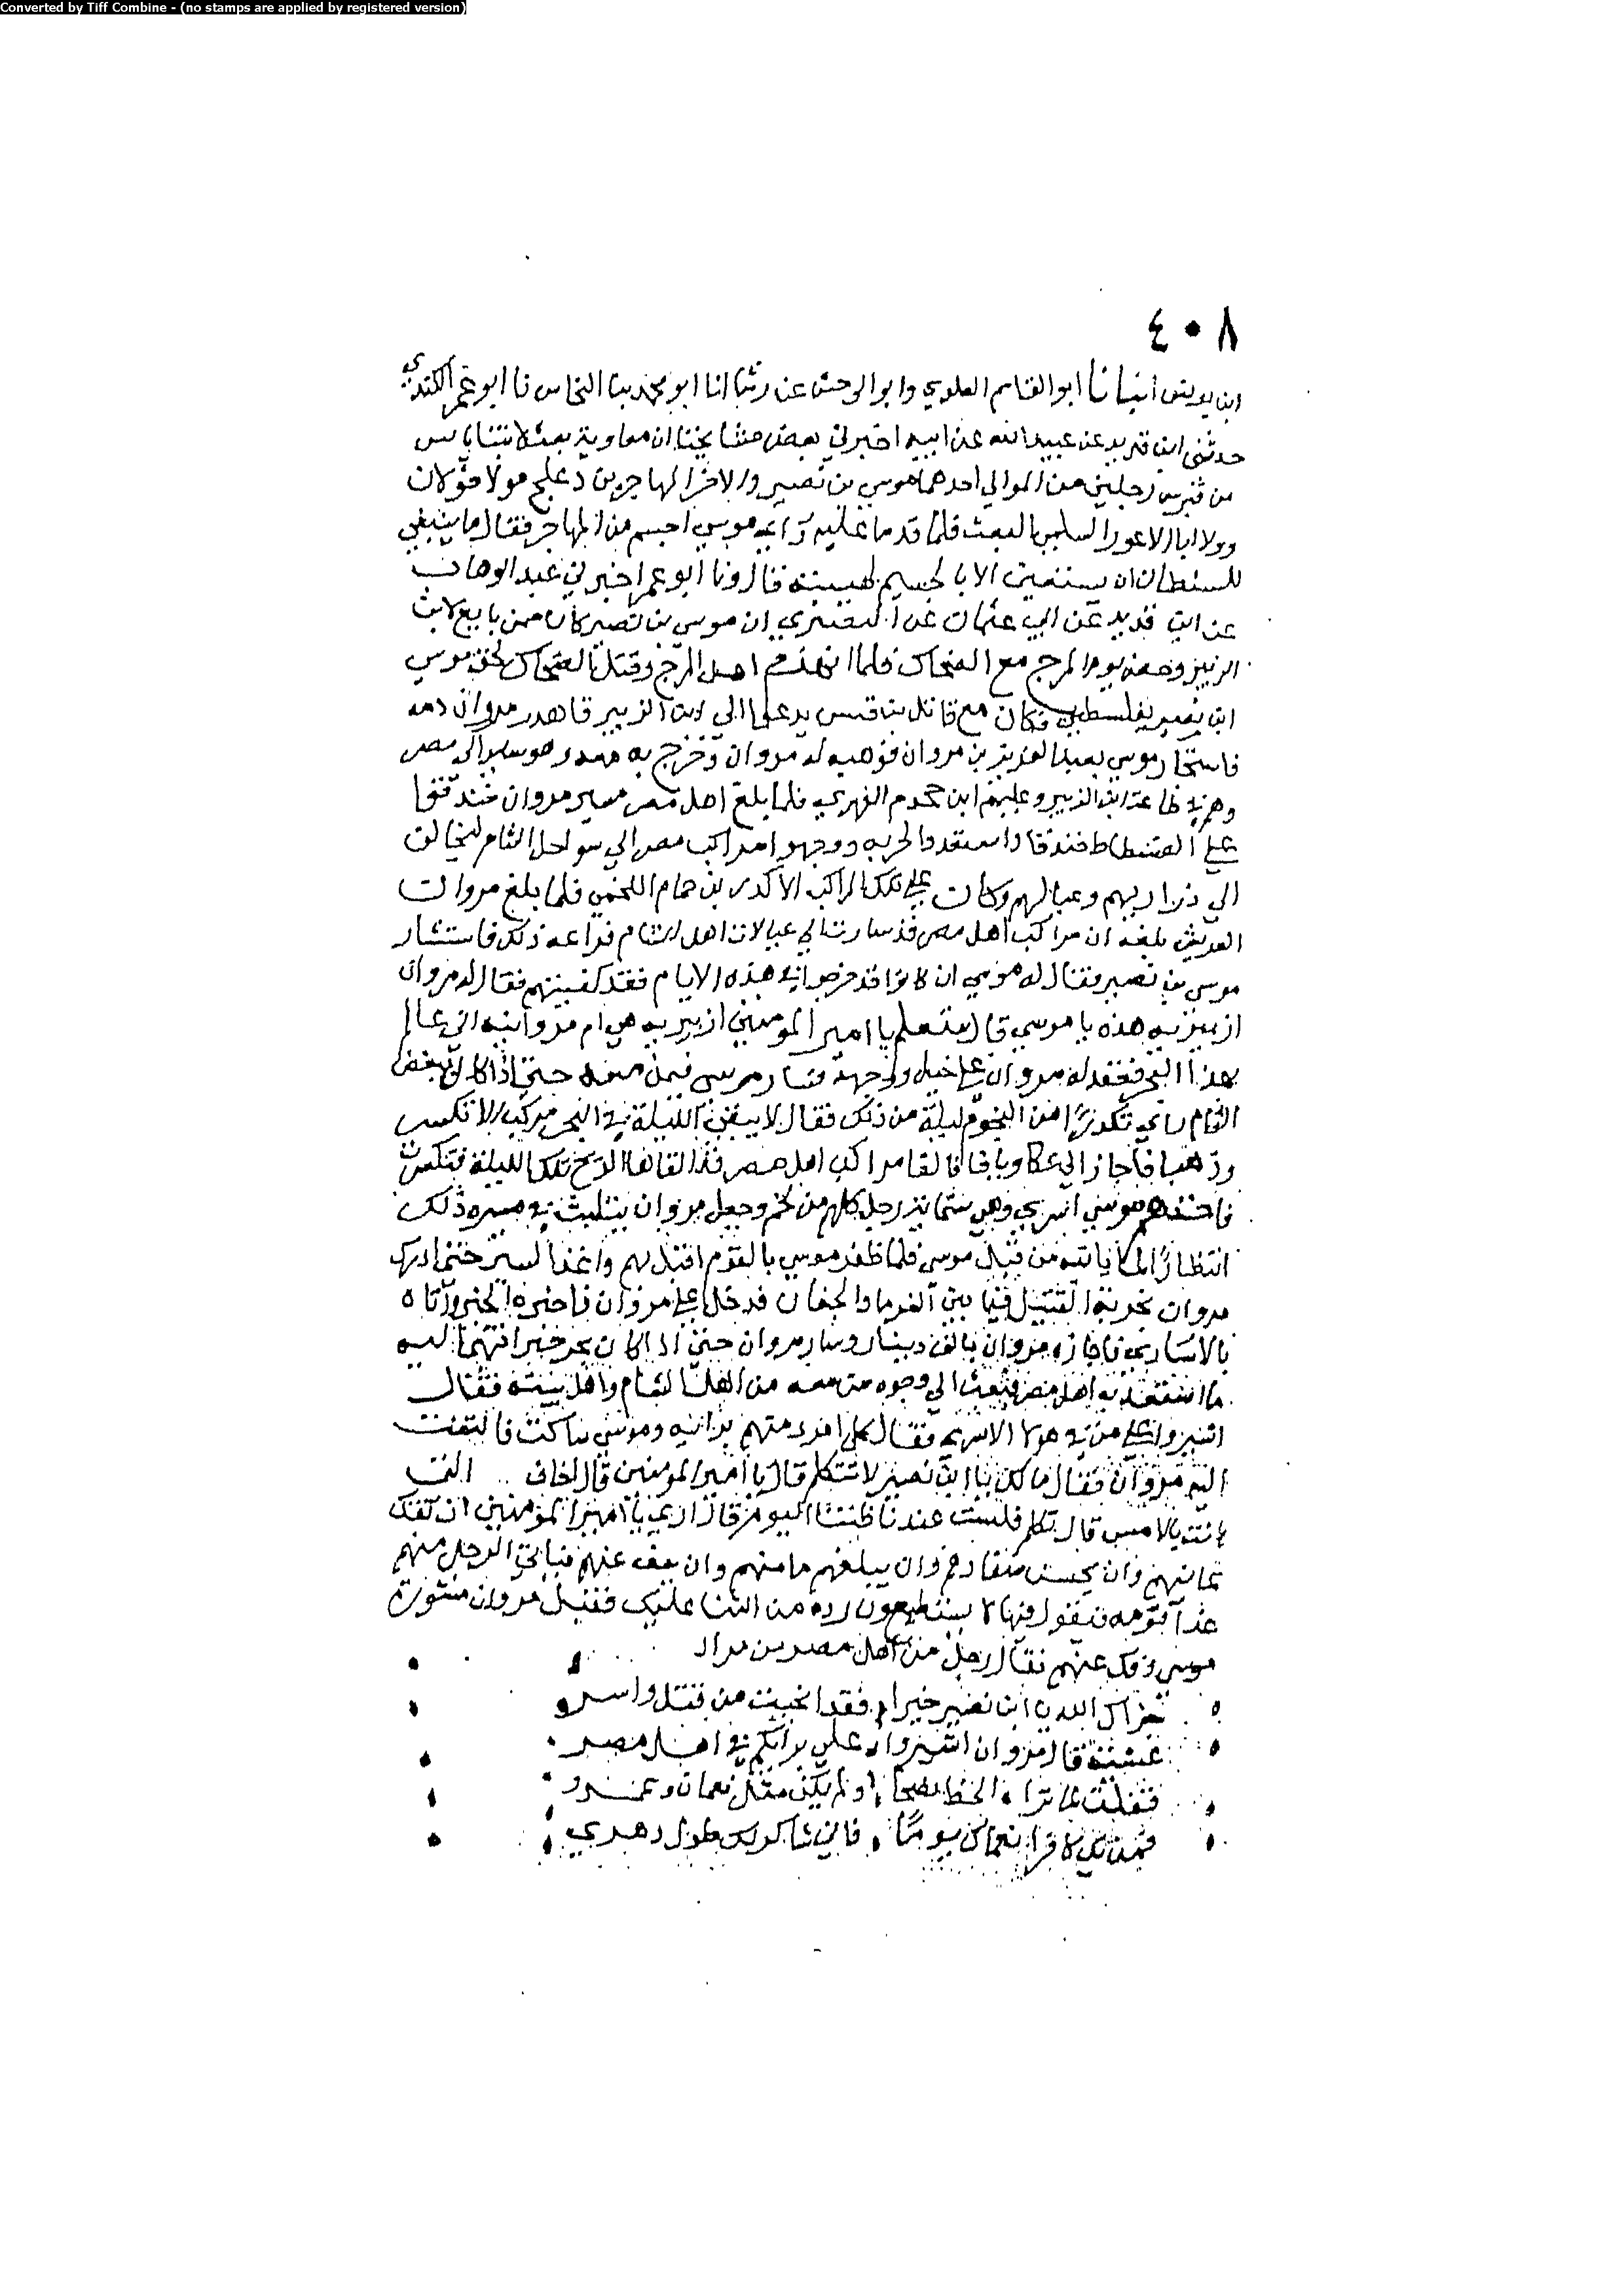 Converted by Tiff Combine - (no stamps are applied by registered version)
٤٠٨
ابن يونس انبانا ابو القاسم العلوي وابو الوحش عن رشا انا ابو محمد بن النحاس نا ابو عمر الكندي
حدثني ابن قديد عن عبيد الله عن ابيه اخبرني بعض مشايخنا ان معاوية بعث
من قبرس رجلين من الموالي احدهما موسى بن نصير والاخر المهاجر بن دعلج مولا خولان
وولا ابا الاعور السلمي البعث فلما قدما عليه رآي موسي اجسم من المهاجر فقال ما ينبغي
للسلطان ان يستعين الا بالجسيم لهيبته قال ونا ابو عمر اخبرني عبد الوهاب
عن ابن قديد عن ابي عثمان عن ان موسي بن نصير كان ممن بايع لابن
الزبير وحضر يوم المرج مع الضحاك فلما انهزم اهل المرج وقتل الضحاك لحق موسي
ابن نصير بفلسطين فكان مع ناتل بن قيس يدعوا الي ابن الزبير فاهدر مروان دمه
فاستجار موسي بعبد العزيز بن مروان فوهبه له مروان وخرج به معه وهو ساير الى مصر
وهم في طاعة ابن الزبير وعليهم ابن جحدم الفهري فلما بلغ اهل مصر مسير مروان خندقوا
علي الفسطاط خندقا واستعدوا لحربه ووجهوا مراكب مصر الي سواحل الشام ليخالف
الي ذراريهم وعيالهم وكان علي تلك المراكب الاكدر بن حمام اللخمي فلما بلغ مروان
العريش بلغه ان مراكب اهل مصر قد سارت الي عيالات اهل الشام فراعه ذلك فاستشار
موسي بن نصير فقال له موسي ان كانوا قد خرجوا في هذه الايام فقد كفيتهم فقال له مروان
ازبيرية هذه يا موسي قال ستعلم يا امير المومنين ازبيرية هي ام مروانية اني عالم
بهذا البحر فعقد له مروان علي خيل ووجهه فسار موسي فيمن معه حتي اذا كان ببعض
الشام راي تكدرا من النجوم ليلة من ذلك فقال لا يبقين الليلة في البحر مركب الا تكسر
وذهب فاجاز الي عكا ويافا فالفا مراكب اهل مصر قد القاها الريح تلك الليلة فتكسرت
فاخذهم موسي اسري وهي ستماية رجل كلهم من لخم وجعل مروان يتلبث في مسيره ذلك
انتظارا لما ياتيه من قبل موسي فلما ظفر موسي بالقوم اقبل بهم واغذ السير حتي ادرك
مروان بخربة القتيل فيما بين الفرما والجفار فدخل علي مروان فاخبره الخبر واتاه
بالاساري فاجازه مروان بالف دينار وسار مروان حتي اذا كان بجرجير انتهي اليه
ما استعد به اهل مصر فبعث الي وجوه من معه من اهل الشام واهل بيته فقال
اشيروا علي في هولا الاسري فقال كل امرء منهم برايه وموسي ساكت فالتفت
اليه مروان فقال ما لك يا ابن نصير لا تتكلم قال يا امير المومنين قال اخاف الت
بالامس قال تكلم فلست عندنا ظنينا اليوم قال اري يا امير المؤمنين ان تفك
عانيهم وان يحسن وان يبلغهم مامنهم وان يعف عنهم فياتي الرجل منهم
غدا قومه فيقول فيهم لا يستطيعون رده من الثنا عليك فقبل مروان مشورة
موسي وفك عنهم فقال رجل من اهل مصر من مراد
جزاك الله يا ابن نصير خيرا فقد انجيت من قتل واسرو
عشية قال مروان اشيروا علي برايكم في اهل مصر
فقلت ولم يكن مثل نعمان وعمرو
فاني شاكر لك طول دهري